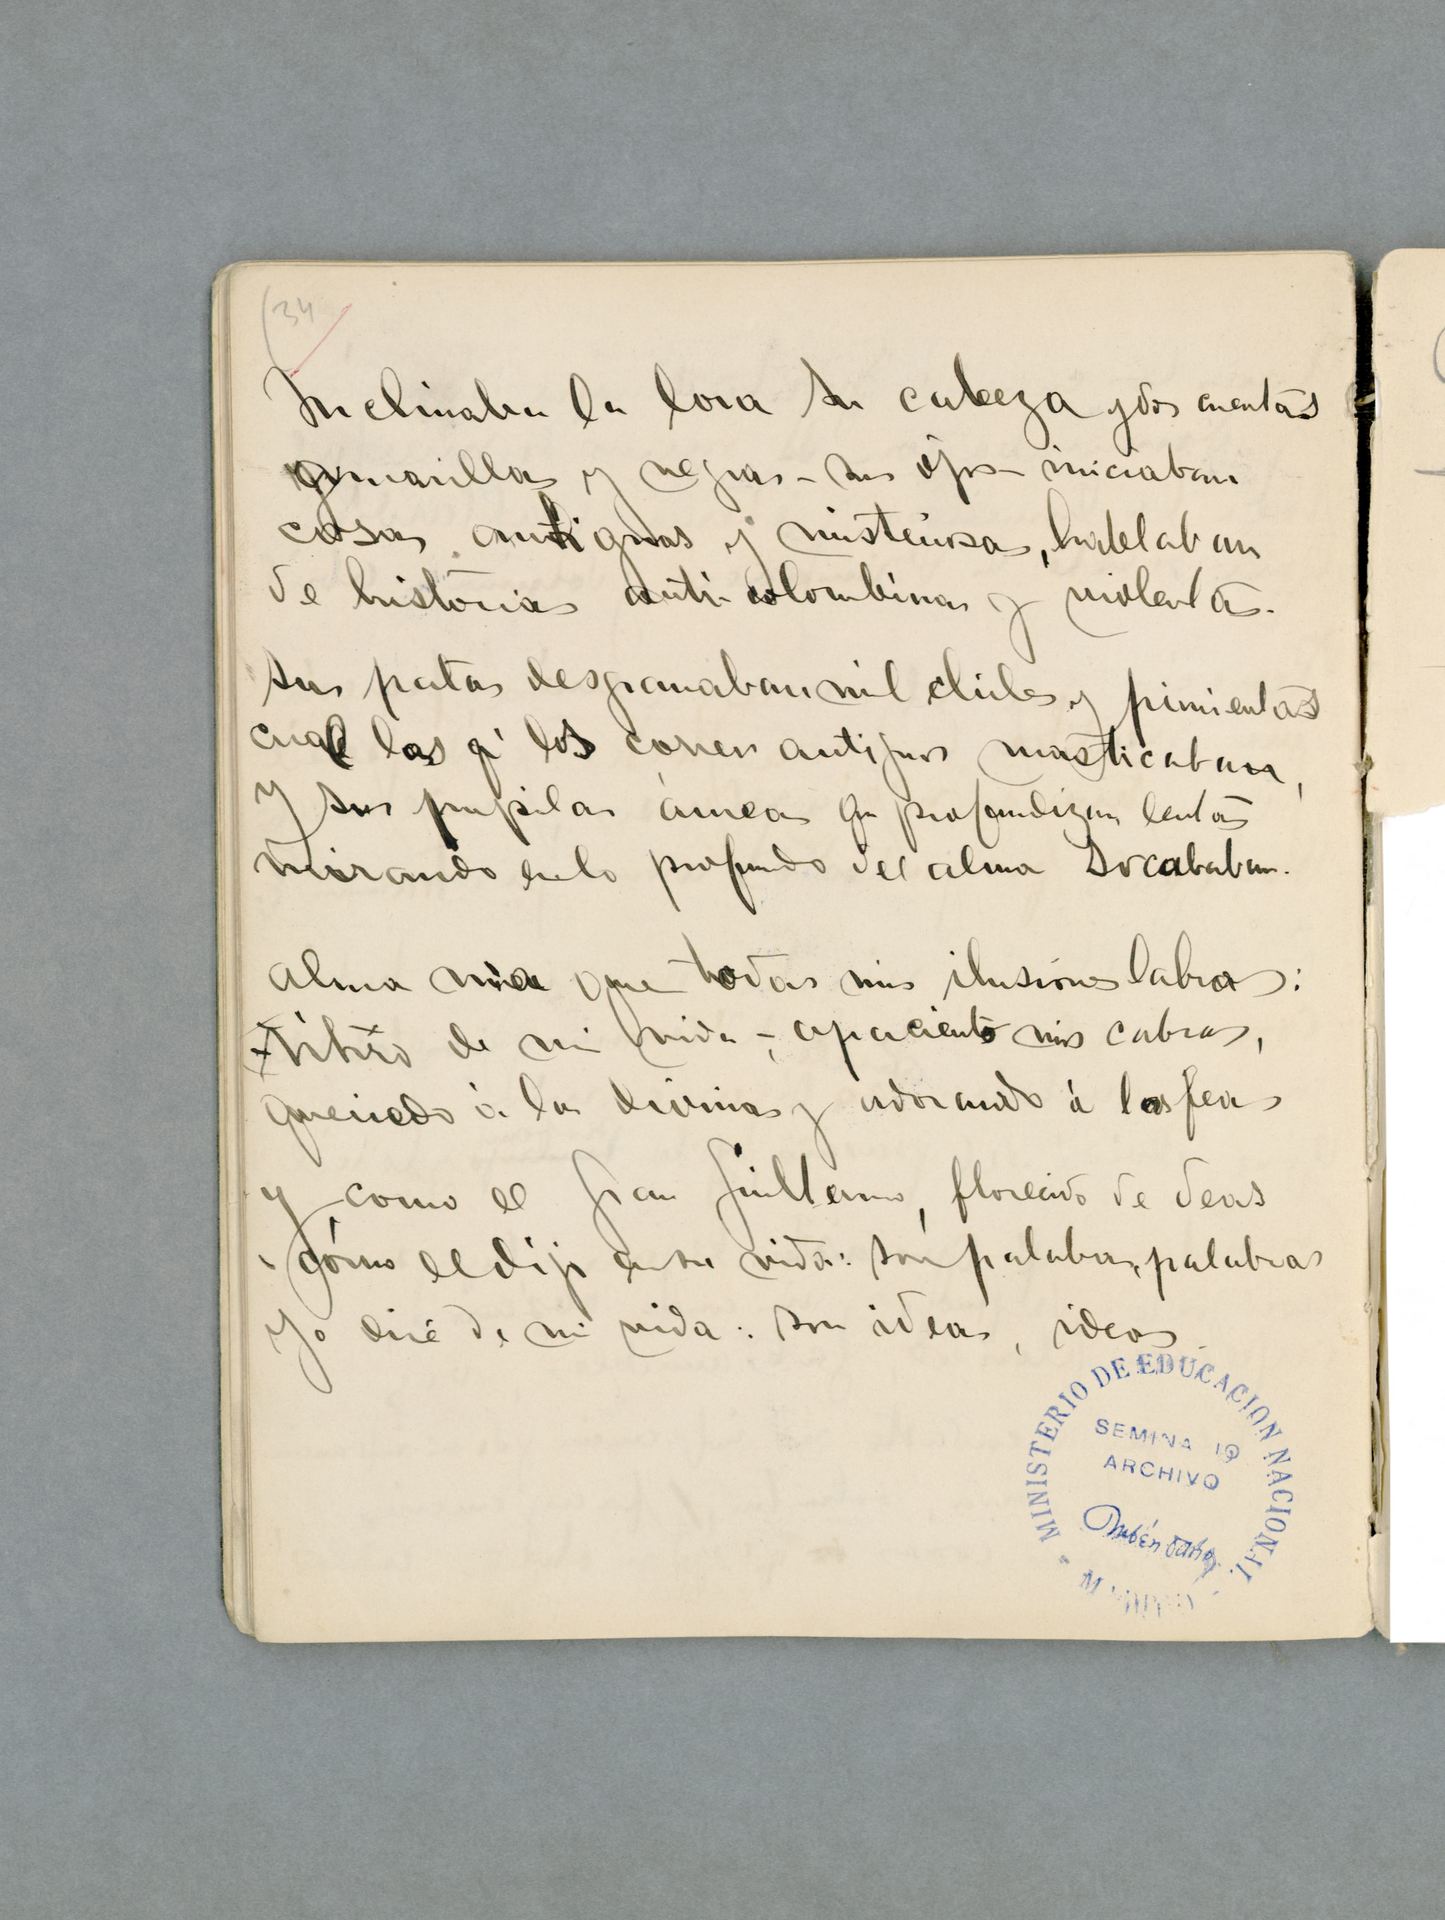 34
Inclinaba la lora su cabeza y dos cuentas
amarillas y negras - sus ojos - iniciaban
cosas antiguas y misteriosas, hablaban
de historias anti-colombinas y violentas.
Sus patas desgranaban mil chiles y pimientas
cual las q' los antiguos masticaban,
y sus pupilas áureas qe profundizan lentas
mirando en lo profundo del alma socababan.
Alma mía que todas mis ilusiones labras:
Títiro de mi vida -, apaciento mis cabras,
queriendo á las divinas y adorando á las feas
y como el Gran Guillermo, florecido de deas
cómo el dijo en su vida: son palabras, palabras
Yo diré de mi vida: son ideas, ideas
MINISTERIO DE EDUCACION NACIONAL
SEMINARIO
ARCHIVO
Rubén Darío
MADRID